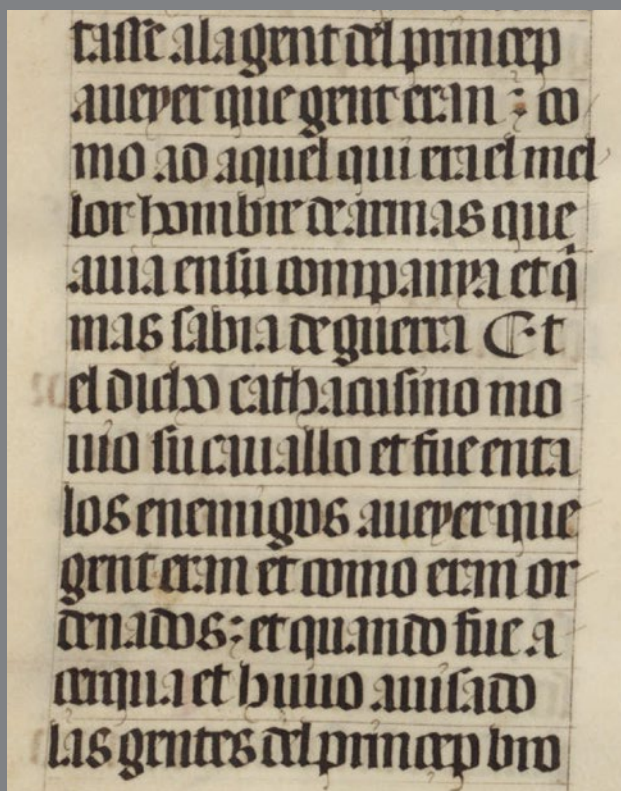 tasse ala gent del princep
aueyer que gent eran : co
mo ad aquel qui era el mel
lor hombre de armas que
auia en su companya et q̃
mas sabia de guerra Et
el dicho cathacusino mo
uio su cauallo et fue enta
los enemigos aueyer que
gent eran et como eran or
denados : et quando fue a
cerqua et huuo auisado
las gentes del princep vio